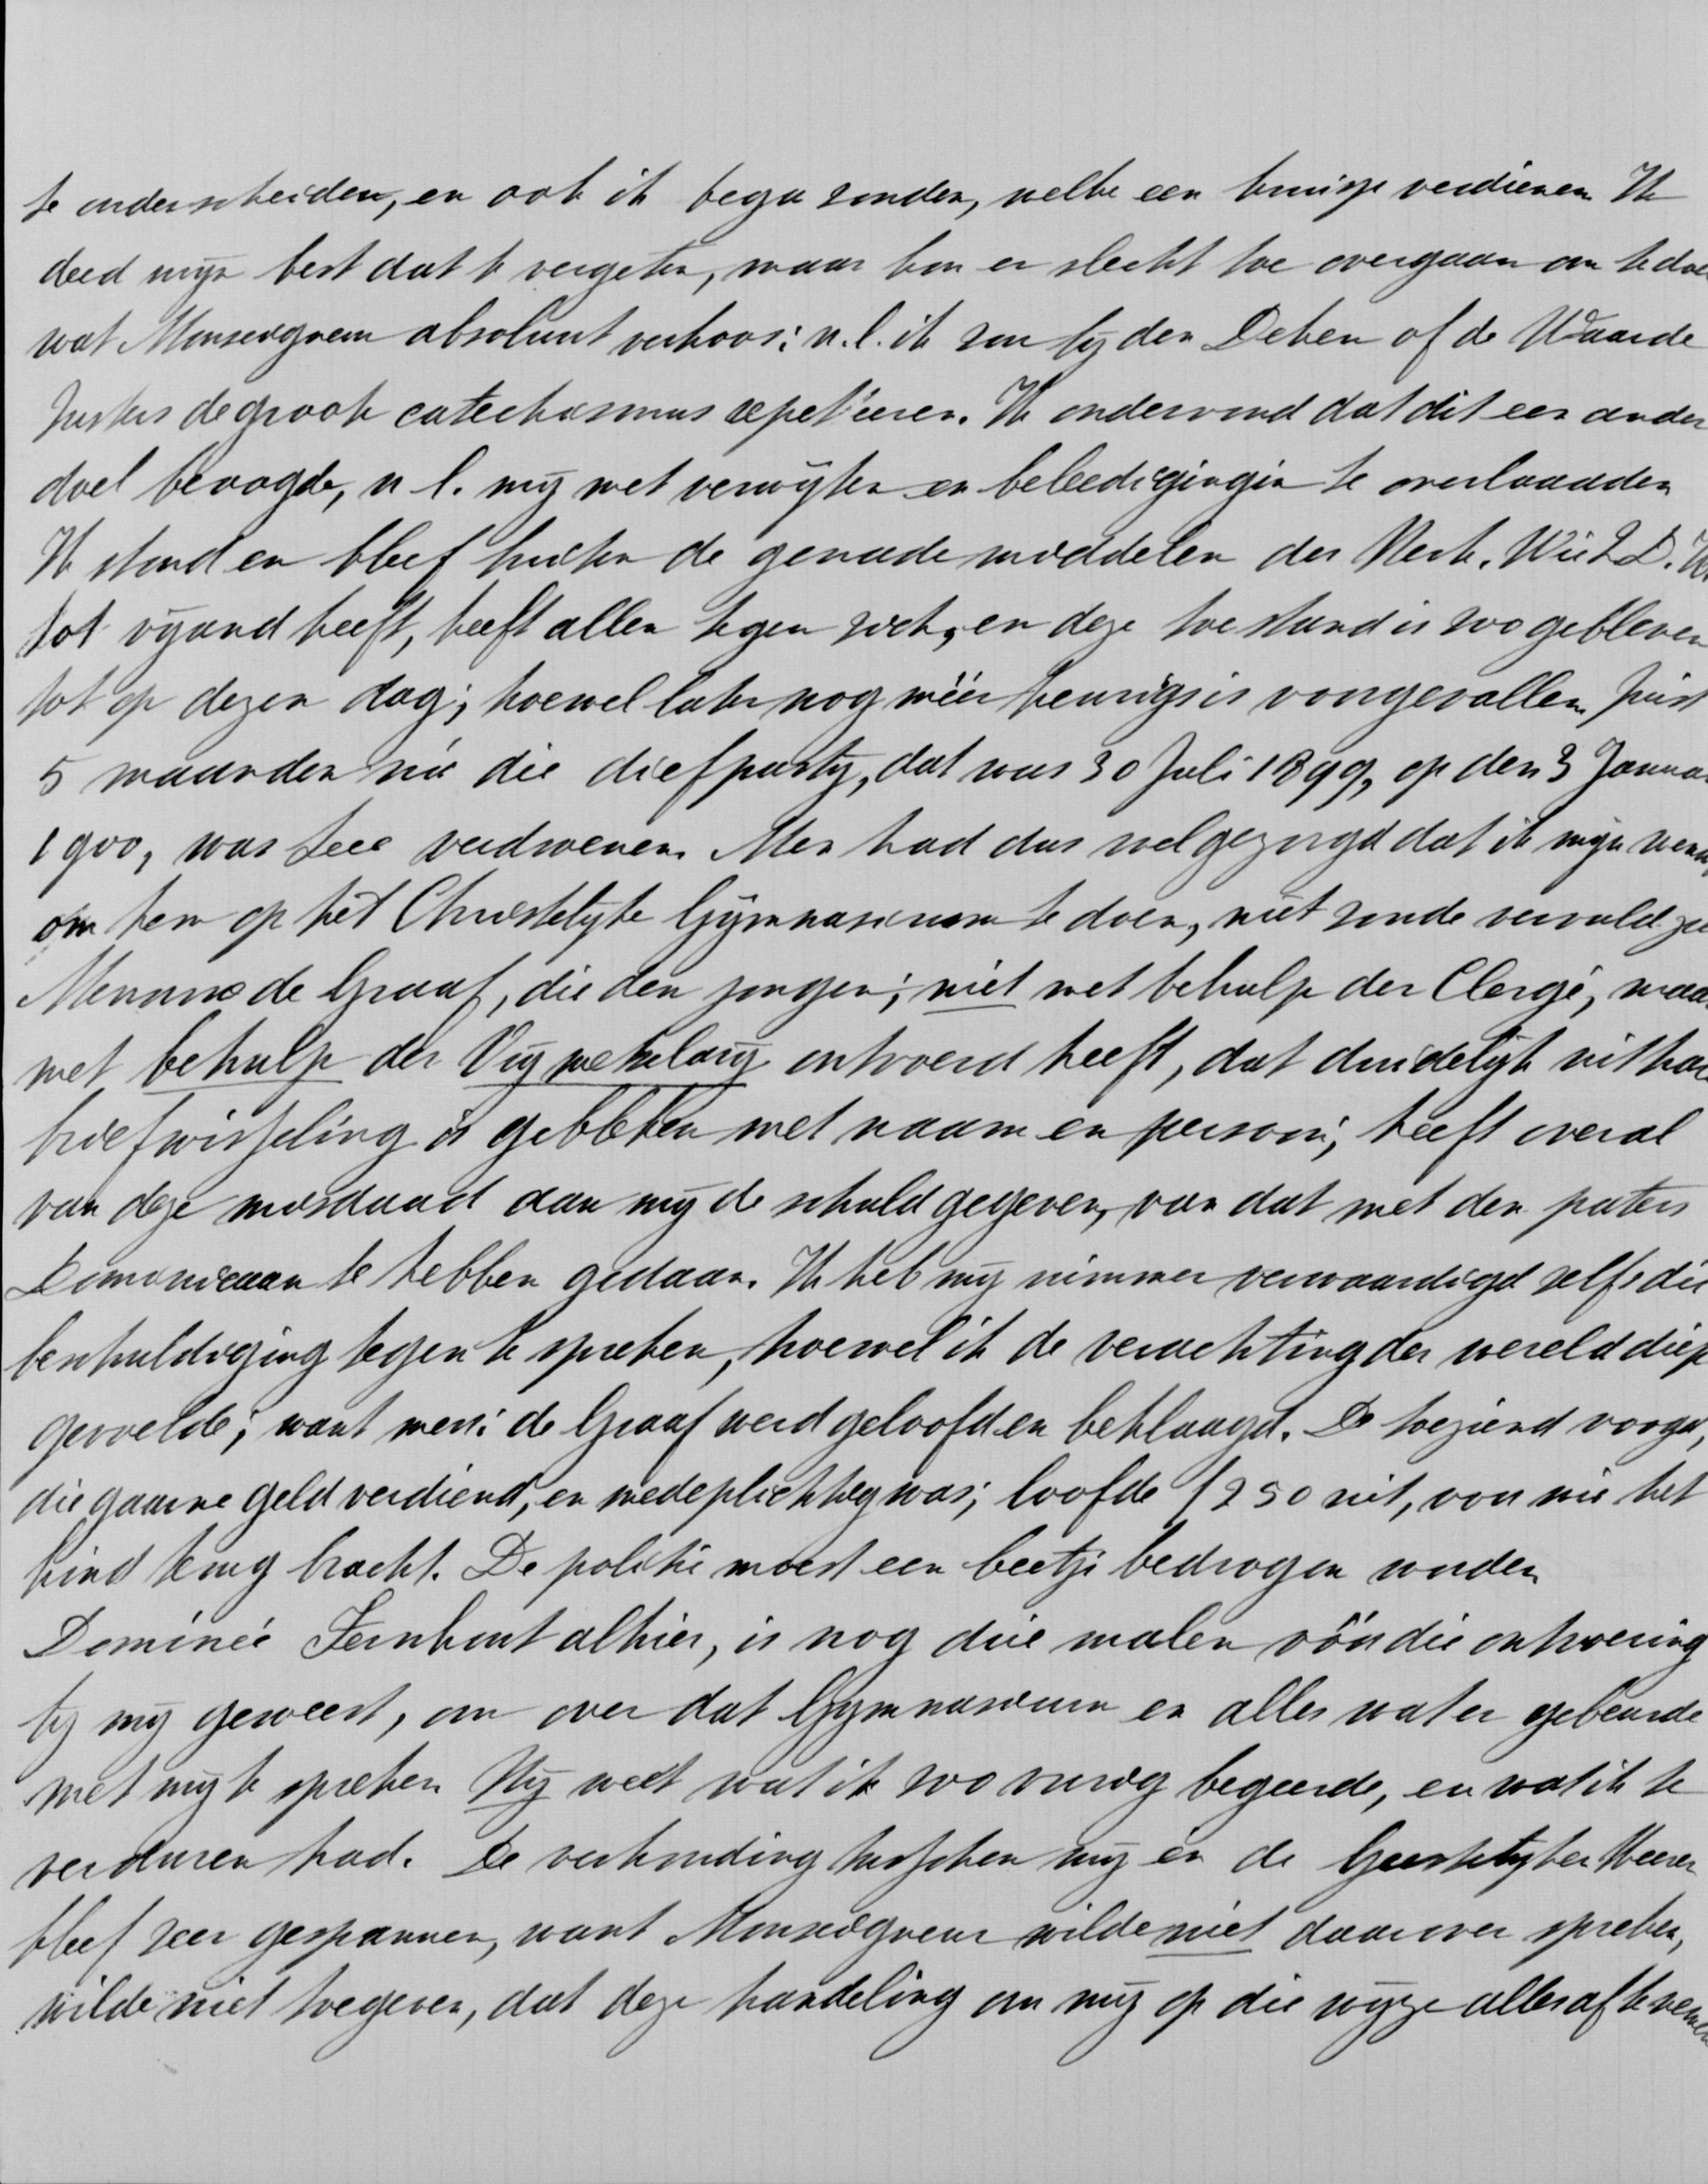 te onderscheiden, en ook ik bega zonden, welke een kruisje verdienen. Ik
deed mijn best dat te vergeten, maar kon er slecht toe overgaan om te doen
wat Monseigneur absoluut verkoos: n.l. ik zou bij den Deken of de Waarde
Zusters de groote catechismus repeteeren. Ik ondervond dat dit een ander
doel beoogde, n.l. mij met verwijten en beleedigingen te overlaadden
Ik stond en bleef buiten de genademiddelen der Kerk. Wie Z.D.
tot vijand heeft, heeft allen tegen zich, en deze toestand is zoo gebleven
tot op dezen dag; hoewel later nog méér treurigs is voorgevallen. Juist
5 maanden ná die diefparty, dat was 30 Juli 1899, op den 3 Januari
1900, was Leee verdwenen. Men had dus wel gezorgd dat ik mijn
om hem op het Christelijke Gymnasium te doen, niet zoude vervuld zien
Menno de Graaf, die den jongen; niet met behulp der Clergé, maar
met behulp der Vrymetselary ontvoerd heeft, dat duidelijk uit haar
briefwisseling is gebleken met naam en persoon; heeft overal
van deze misdaad aan mij de schuld gegeven, van dat met den paters
Dominicaan te hebben gedaan. Ik heb mij nimmer verwaardigd zelfs die
beschuldiging tegen te spreken, hoewel ik de verachting der wereld diep
gevoelde; want men: de Graaf werd geloofd en beklaagd. De toeziend voogd,
die gaarne geld verdiend, en medeplichtig was; loofde ƒ 250 uit, voor wie het
kind terug bracht. De politie moest een beetje bedrogen worden
Dominéé Fernhout alhier, is nog drie malen vóór die ontvoering
by mij geweest, om over dat Gymnasium en alles wat er gebeurde
met mij te spreken. Hij weet wat ik zoo vurig begeerde, en wat ik te
verduren had. De verhouding tusschen mij en de Geestelijke Heeren
bleef zeer gespannen, want Monseigneur wilde niet daarover spreken,
wilde niet toegeven, dat deze handeling om mij op die wijze alles af te nemen